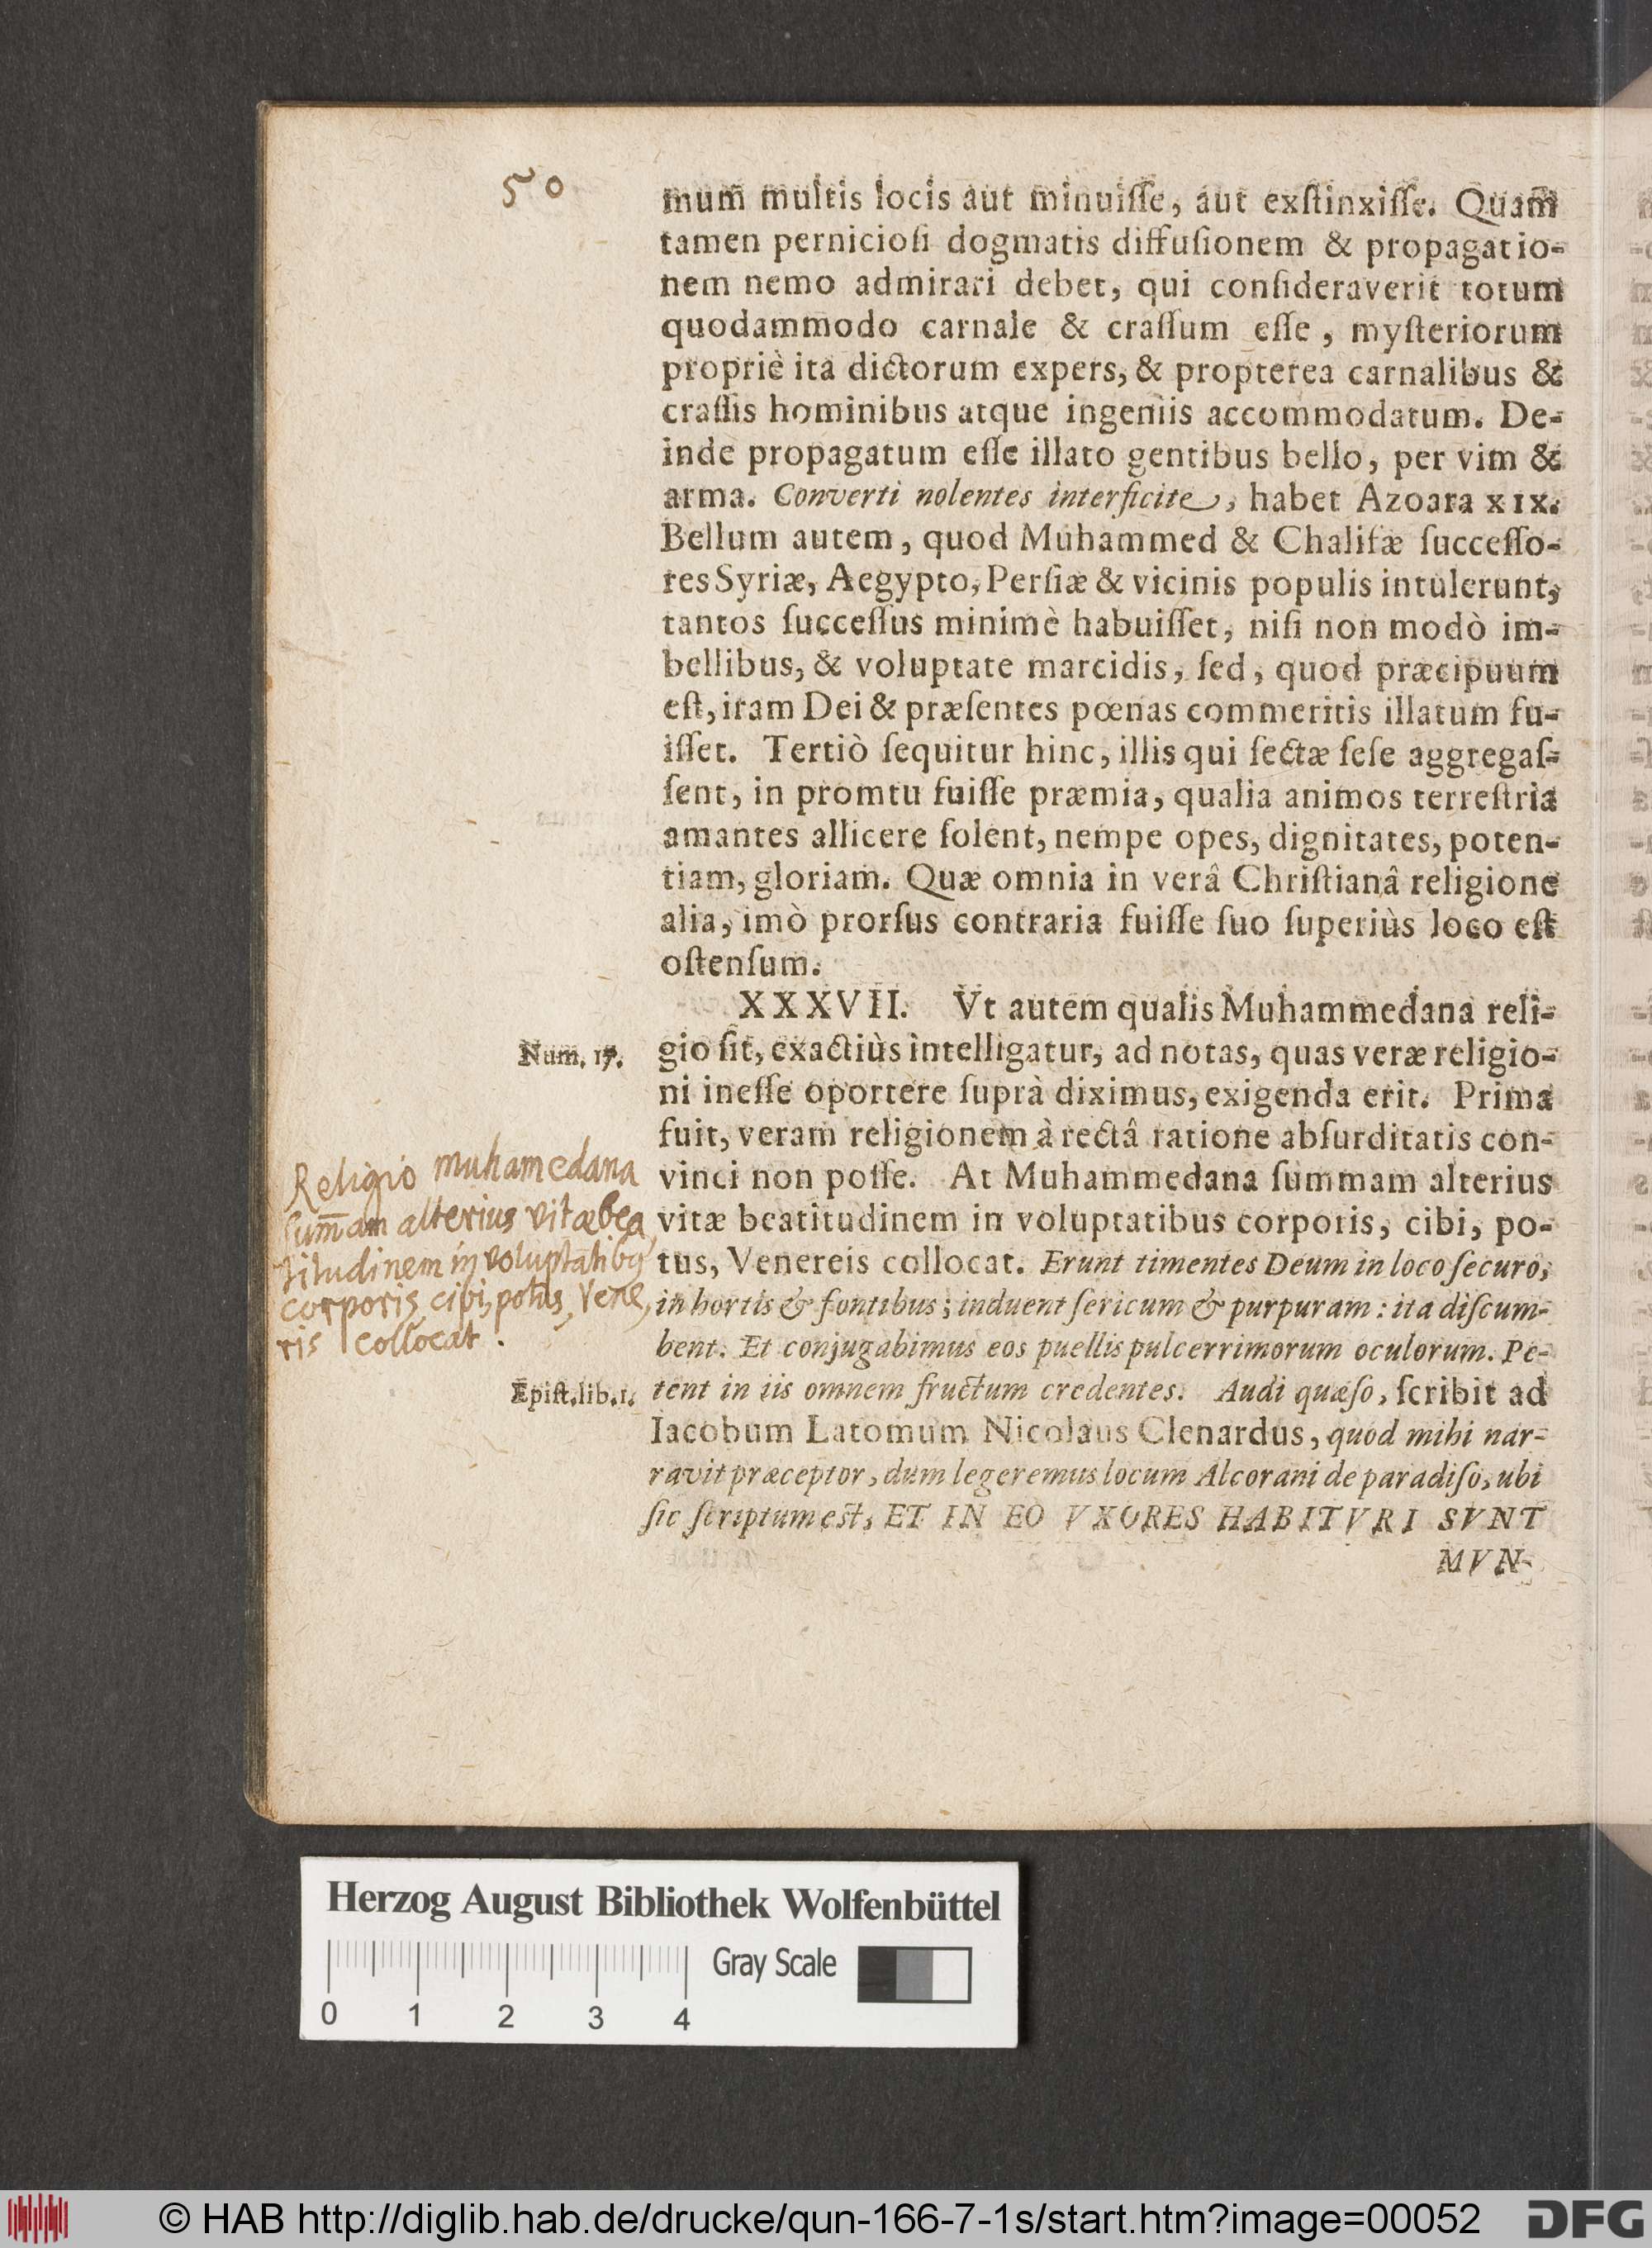 50
mum multis locis aut minuiſſe, aut exſtinxiſſe. Quam
tamen pernicioſi dogmatis diffuſionem & propagatio-
nem nemo admirari debet, qui conſideraverit totum
quodammodo carnale & craſſum eſſe, myſteriorum
propriè ita dictorum expers, & propterea carnalibus &
craſſis hominibus atque ingeniis accommodatum. De-
inde propagatum eſſe illato gentibus bello, per vim &
arma. Converti nolentes interficite, habet Azoara XIX.
Bellum autem, quod Muhammed & Chalifæ ſucceſſo-
res Syriæ, Aegypto, Perſiæ & vicinis populis intulerunt,
tantos ſucceſſus minimè habuiſſet, niſi non modò im-
bellibus, & voluptate marcidis, ſed, quod præcipuum
eſt, iram Dei & præſentes pœnas commeritis illatum fu-
iſſet. Tertiò ſequitur hinc, illis qui ſectæ ſeſe aggregaſ-
ſent, in promtu fuiſſe præmia, qualia animos terreſtria
amantes allicere ſolent, nempe opes, dignitates, poten-
tiam, gloriam. Quæ omnia in verâ Chriſtianâ religione
alia, imò prorſus contraria fuiſſe ſuo ſuperiùs loco eſt
oſtenſum.
XXXVII. Vt autem qualis Muhammedana reli-
Num. 17.
gio ſit, exactiùs intelligatur, ad notas, quas veræ religio-
ni ineſſe oportere ſuprà diximus, exigenda erit. Prima
fuit, veram religionem à rectâ ratione abſurditatis con-
vinci non poſſe. At Muhammedana ſummam alterius
vitæ beatitudinem in voluptatibus corporis, cibi, po-
tus, Venereis collocat. Erunt timentes Deum in loco ſecuro,
in hortis & fontibus; induent ſericum & purpuram: ita diſcum-
bent. Et conjugabimus eos puellis pulcerrimorum oculorum. Pe-
Religio muhamedana
sum̄am alterius vitæ bea
titudinem in voluptatibꝰ
corporis, cibi, potus, Vene,
ris collocat.
Epiſt. lib. 1.
tent in iis omnem fructum credentes. Audi quæſo, ſcribit ad
Iacobum Latomum Nicolaus Clenardus, quod mihi nar-
ravit præceptor, dum legeremus locum Alcorani de paradiſo, ubi
ſic ſcriptum eſt, ET IN EO VXORES HABITVRI SVNT
MVN-
Herzog August Bibliothek Wolfenbüttel
Gray Scale
0 1 2 3 4
© HAB http://diglib.hab.de/drucke/qun-166-7-1s/start.htm?image=00052
DFG